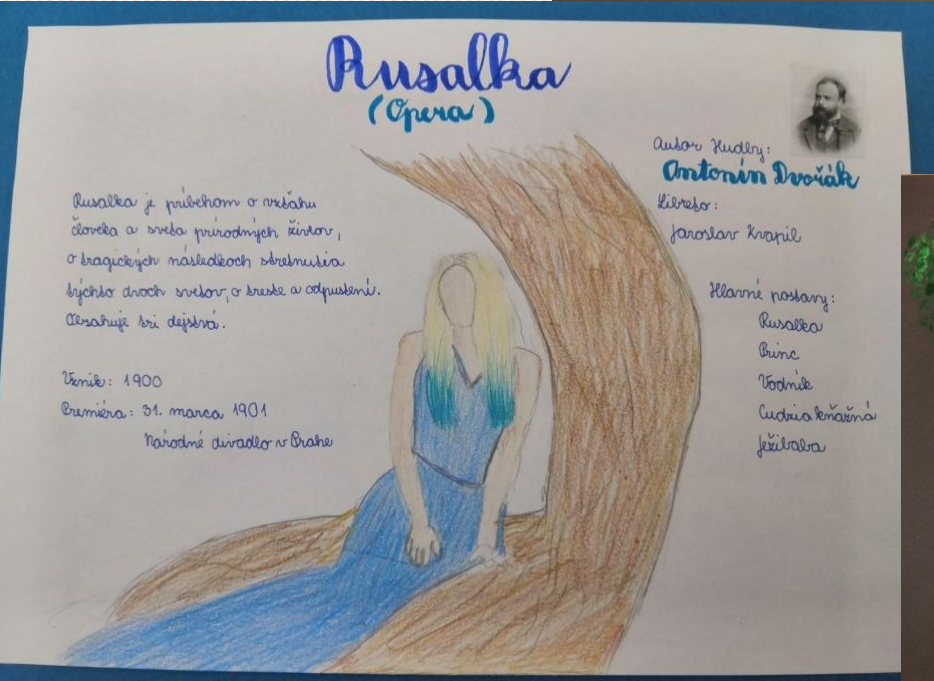 Rusalka
(Opera)
Rusalka je príbehom o vzťahu
človeka a sveta prírodných živlov,
o tragických následkoch stretnutia
týchto dvoch svetov, o treste a odpustení.
Obsahuje tri dejstvá.
Vznik: 1900
Premiéra: 31. marca 1901
Národné divadlo v Prahe
Autor Hudby:
Antonín Dvořák
Libreto:
Jaroslav Kvapil
Hlavné postavy:
Rusalka
Princ
Vodník
Cudzia kňažná
Ježibaba